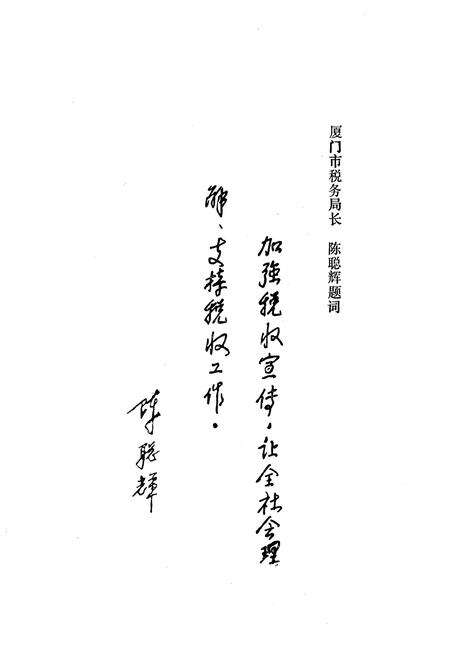 厦门市税务局长 陈聪辉题词
加強税收宣传，让全社会理
解、支持税收工作。
陈聪辉